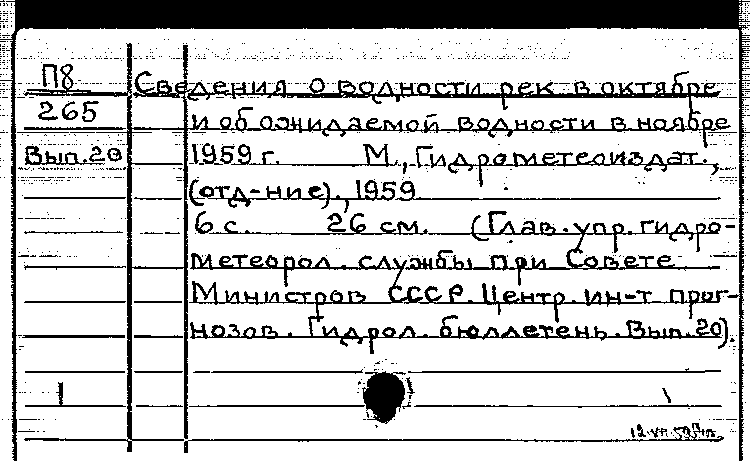 П8 Сведения о водности рек в октябре
265 и об ожидаемой водности в ноябре
Вып.20 1959 г. М., Гидрометеоиздат.,
(отд-ние)., 1959
6 с. 26 см. (Глав. упр. гидро-
метеорол. службы при Совете
Министров СССР. Центр. ин-т прог-
нозов. Гидрол. бюллетень. Вып. 20).